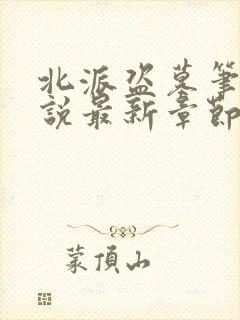 北派盗墓筆
說最新章節
蒙頂山